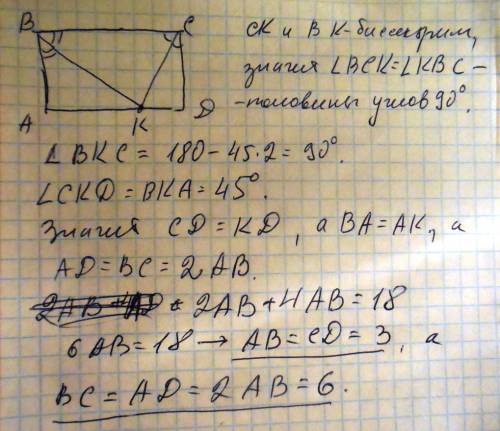 B C
A K D
CK и BK-биссектрис,
значит ∠BCK=∠KBC-
-половины углов 90°.
∠BKC = 180-45·2= 90°.
∠CKD = BKA = 45°.
Значит CD = KD, а BA=AK, а
AD = BC = 2AB.
2AB+4AB=18
6AB=18 → AB=CD=3, а
BC=AD=2AB=6.